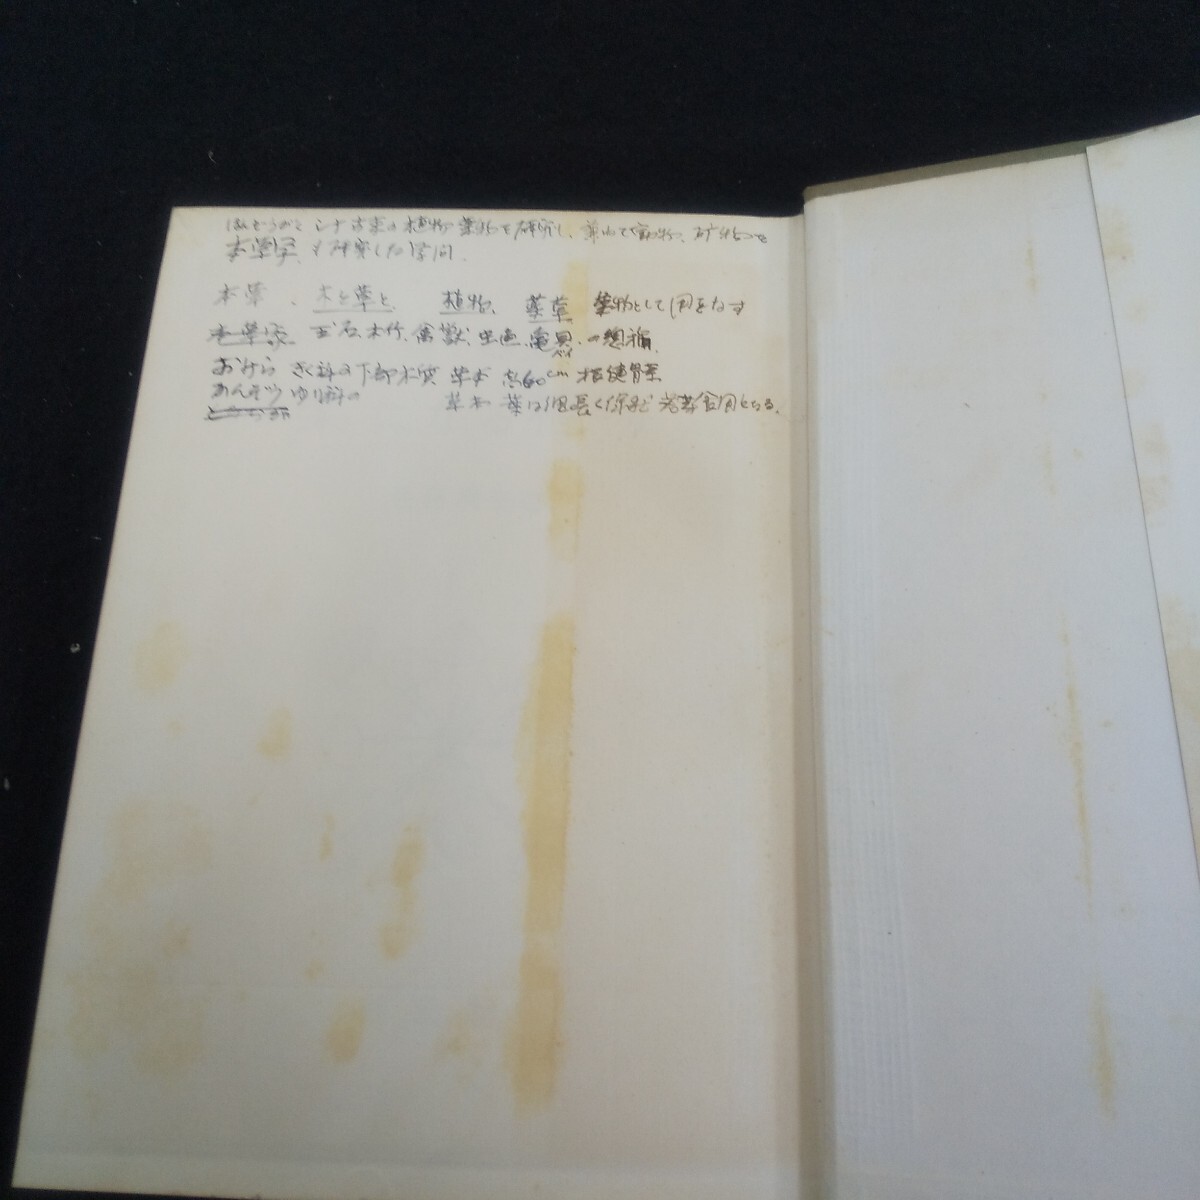 ほんぞうがく シナ古来の植物薬物を研究し、兼ねて動物、矿物を
本草学、も研究した学問.
本草、木と草と、植物、薬草 薬物として用をなす
本草家 玉石、木竹、禽獣、虫魚、亀貝、の総称.
バイ
おけら きく科の下部木質 草本 高60cm 根健胃薬
かんぞう ゆり科の 草本 葉は細長く 若芽食用となる.